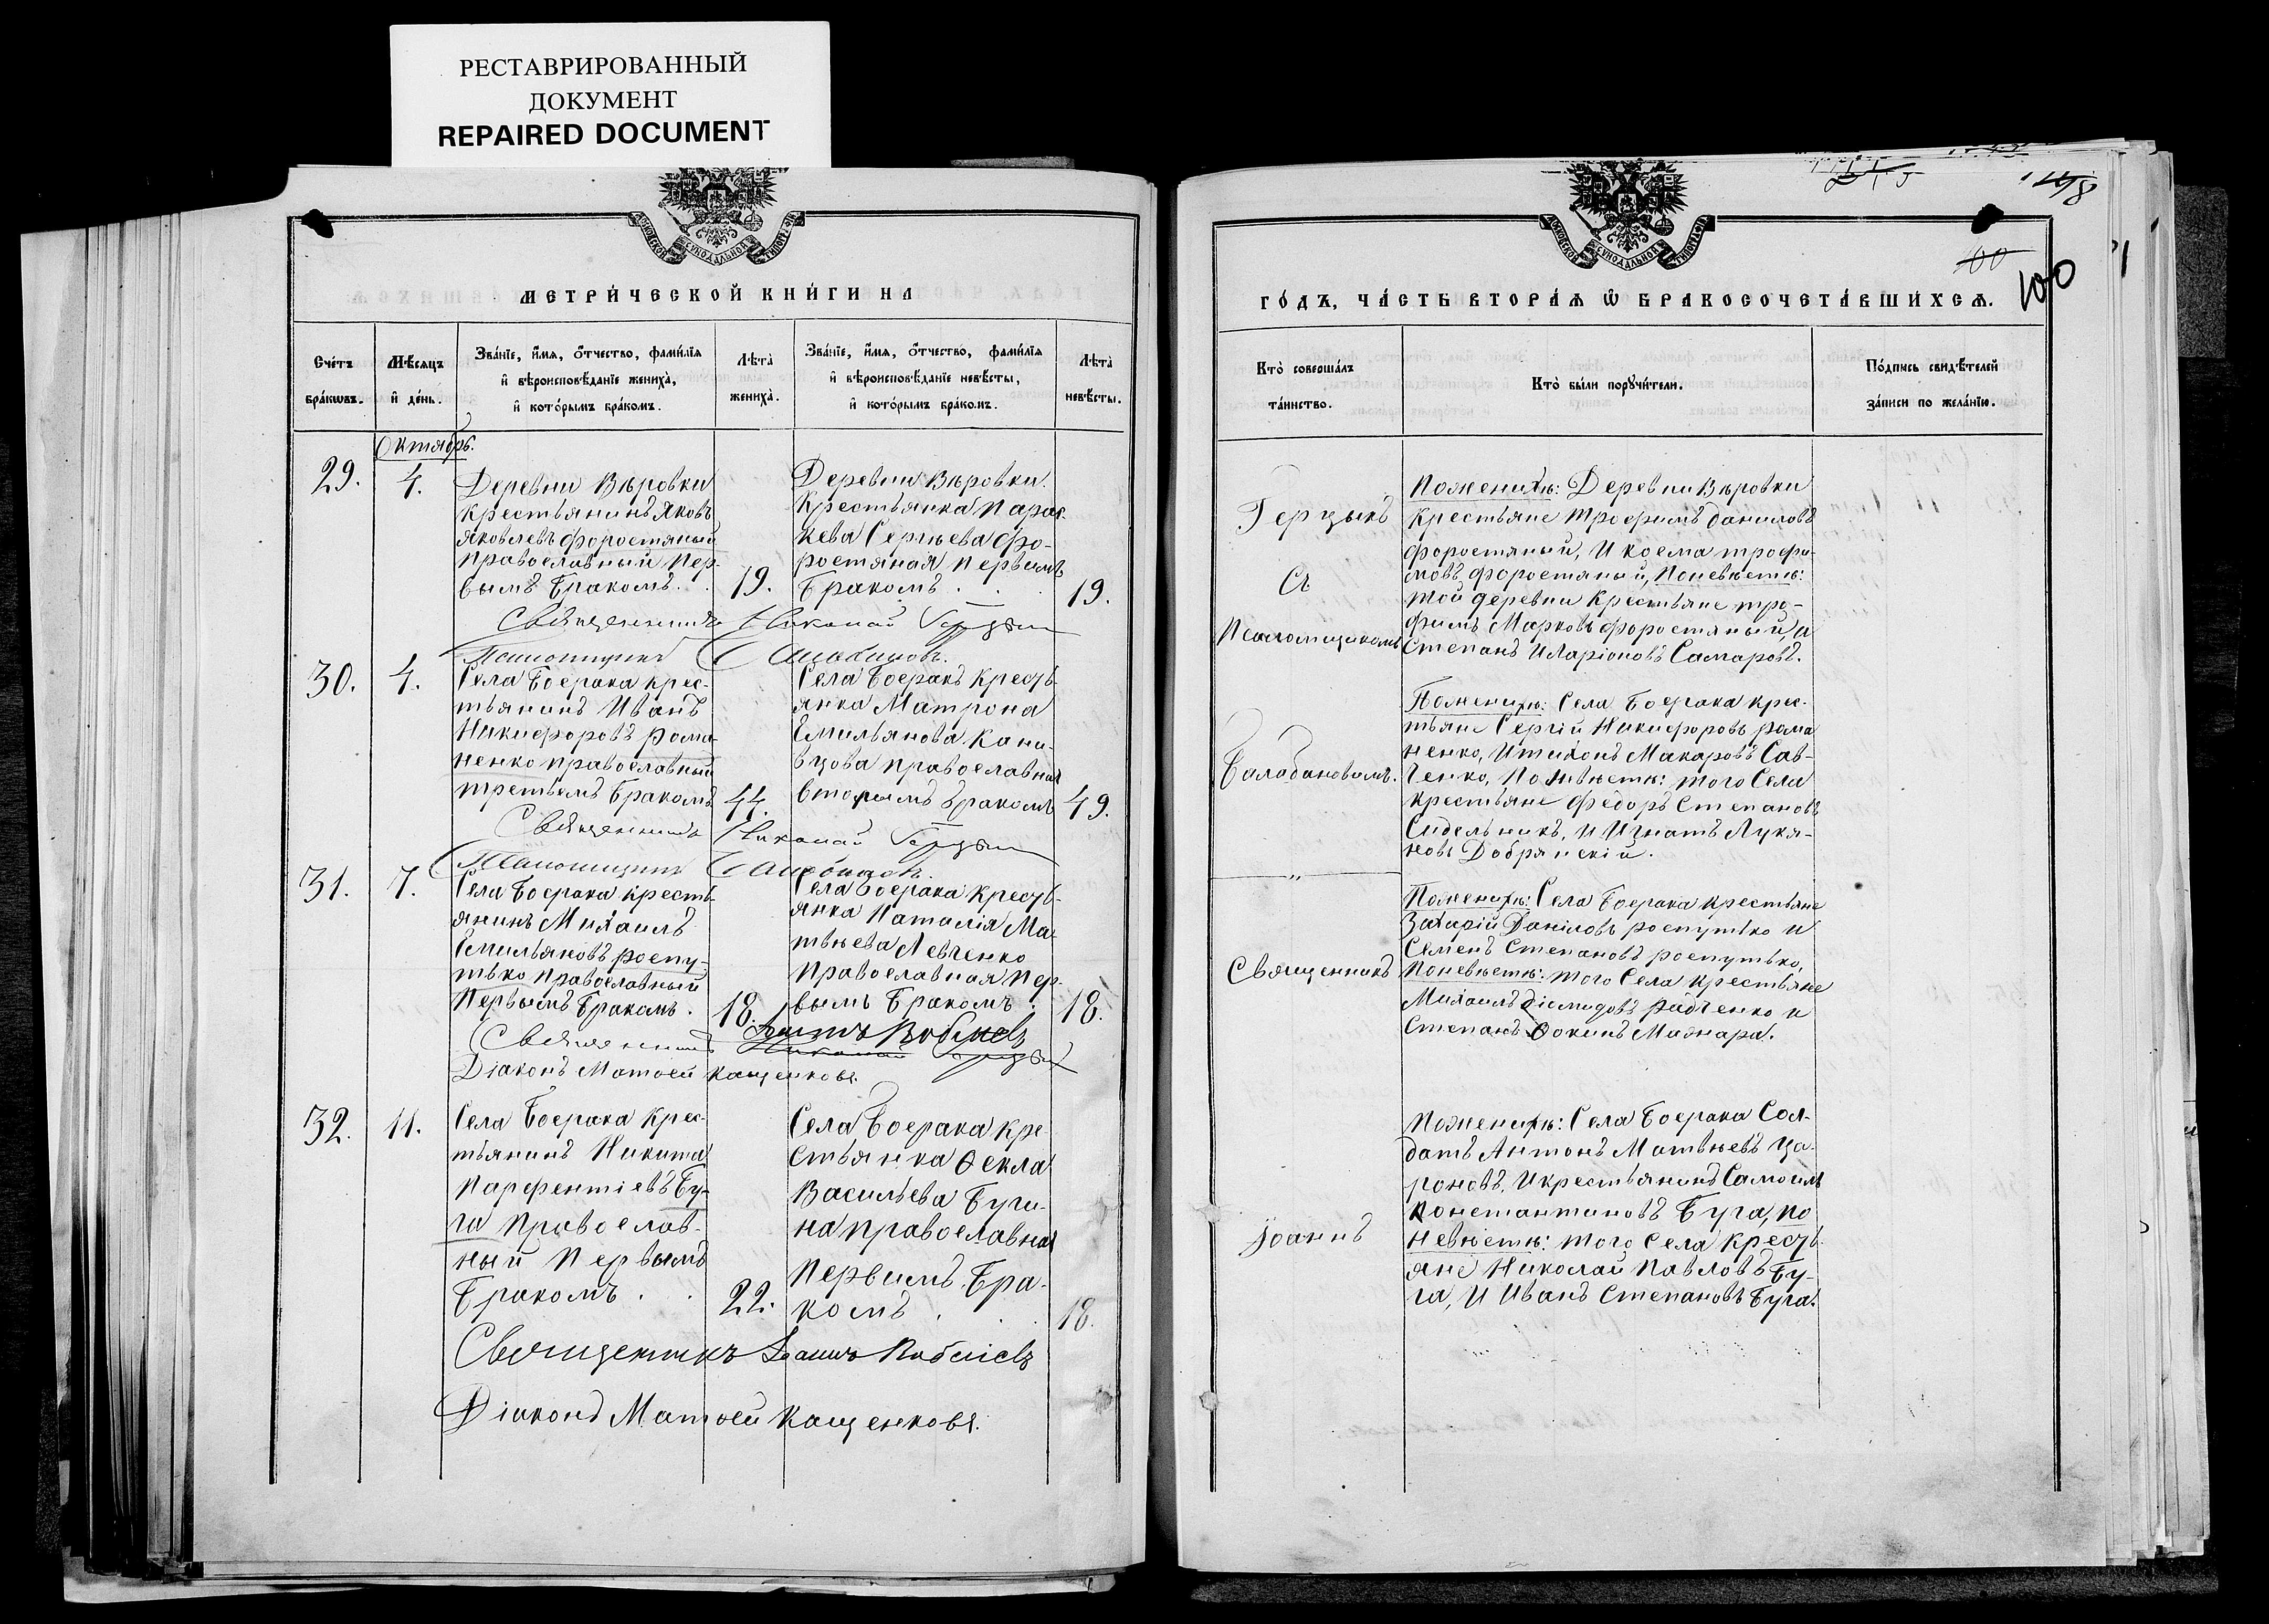 РЕСТАВРИРОВАННЫЙ
ДОКУМЕНТ
REPAIRED DOCUMENT
МЕТРИ́ЧЕСКОЙ КНИ́ГИ НА
Сче́тъ
бра́кωвъ.
Мѣ́сяцъ
и҆ де́нь.
Зва́нїе, и҆́мя, ѻ҆́тчество, фами́лїя
и҆ вѣроисповѣ́данїе жениха̀,
и҆ кото́рымъ бра́комъ.
Лѣта̀
жениха̀.
Зва́нїе, и҆́мя, ѻ҆́тчество, фами́лїя
и҆ вѣроисповѣ́данїе невѣ́сты,
и҆ кото́рымъ бра́комъ.
Лѣта̀
невѣ́сты.
Октябрь.
29.
4.
Деревни Вѣровки
крестьянинъ Яковъ
Яковлевъ Форостяный
православный пер-
вымъ бракомъ.
19.
Деревни Вѣровки
крестьянка Парас-
кева Сергѣева Фо-
ростяная первымъ
бракомъ
19.
Священникъ Николай Герцыкъ
Псаломщикъ
30.
4.
Села Боерака крес-
тьянинъ Иванъ
Никифоровъ Рома-
ненко православный
третьимъ бракомъ
44.
Села Боеракъ кресть-
янка Матрона
Емильянова Кани-
вцова православная
вторымъ бракомъ
49.
Священникъ Николай Герцыкъ
Псаломщикъ
31.
7.
Села Боерака кресть-
янинъ Михаилъ
Емильяновъ Роспу-
тько православный
первымъ бракомъ.
18.
Села Боерака кресть-
янка Наталія Ма-
твѣева Левченко
православная пер-
вымъ бракомъ
18.
Священникъ Николай Герцыкъ
Діаконъ Матѳей Кащенковъ.
32.
11.
Села Боерака крес-
тьянинъ Никита
Парфентіевъ Бу-
га православ-
ный первымъ
бракомъ
22.
Села Боерака кре-
стьянка Ѳекла
Васильева Буги-
на православная
первымъ бра-
комъ
18.
Священникъ Іоаннъ
Діаконъ Матѳей Кащенковъ.
100
100
ГО́ДЪ, ЧА́СТЬ ВТОРА́Я Ѽ БРАКОСОЧЕТА́ВШИХСЯ.
Кто̀ соверша́лъ
та́инство.
Кто̀ бы́ли порꙋчи́тели.
По́дпись свидѣ́телей
за́писи по жела́нїю.
Герцыкъ
съ
Псаломщикомъ
Балабановымъ.
"
Священникъ
Іоаннъ
Поженихѣ: Деревни Вѣровки
крестьяне Трофимъ Даниловъ
Форостяный, и Косма Трофи-
мовъ Форостяный, Поневѣстѣ:
той деревни крестьяне Тро-
фимъ Марковъ Форостяный, и
Степанъ Иларіоновъ Самаровъ.
Поженихѣ: Села Боерака крес-
тьяне Сергій Никифоровъ Рома
ненко, и Тихонъ Макаровъ Сав-
ченко, Поневѣстѣ: того Села
крестьяне Федоръ Степановъ
Сидельникъ, и Игнатъ Лукя-
новъ Добрянскій.
Поженихѣ: Села Боерака крестьяне
Захарій Даніловъ Роспутько и
Семенъ Степановъ Роспутько,
Поневѣстѣ: того Села крестьяне
Михаилъ Діомидовъ Радченко и
Степанъ Ѳокинъ Мазнара.
Поженихѣ: Села Боерака Сол-
датъ Антонъ Матвѣевъ Ца-
роновъ, и крестьянинъ Самоилъ
Константиновъ Буга, по
невѣстѣ: того Села кресть-
яне Николай Павловъ Бу-
га, и Иванъ Степановъ Буга.